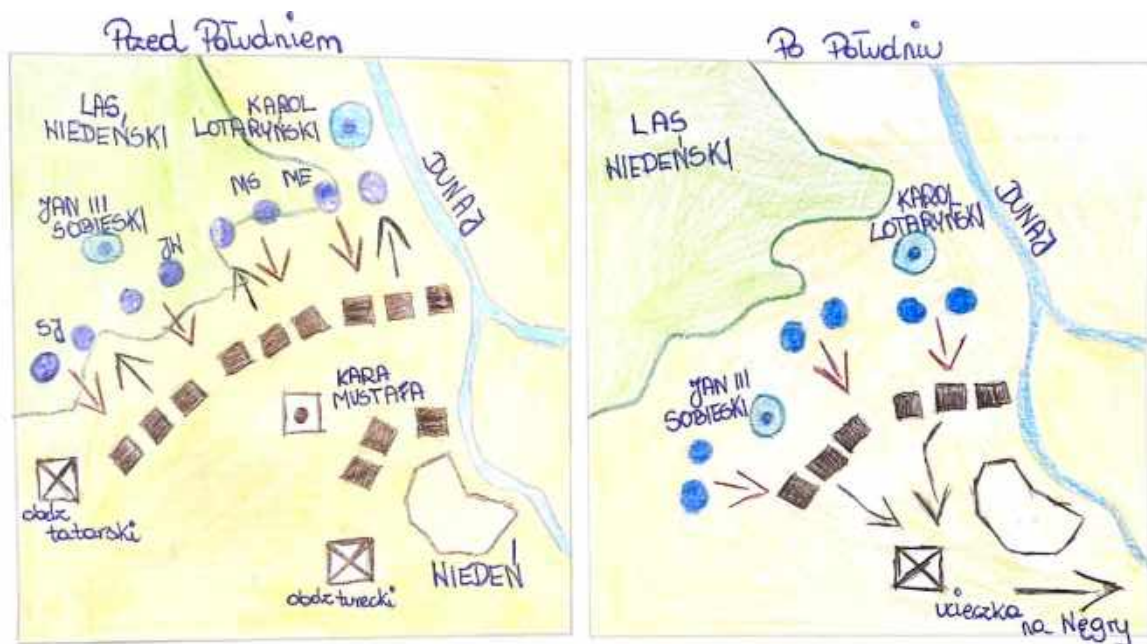 Przed Południem
LAS
WIEDEŃSKI
KAROL
LOTARYŃSKI
DUNAJ
MS
ME
JAN III
SOBIESKI
JW
SJ
KARA
MUSTAFA
obóz
tatarski
obóz turecki
WIEDEŃ
Po Południu
LAS
WIEDEŃSKI
DUNAJ
KAROL
LOTARYŃSKI
JAN III
SOBIESKI
ucieczka
na Węgry